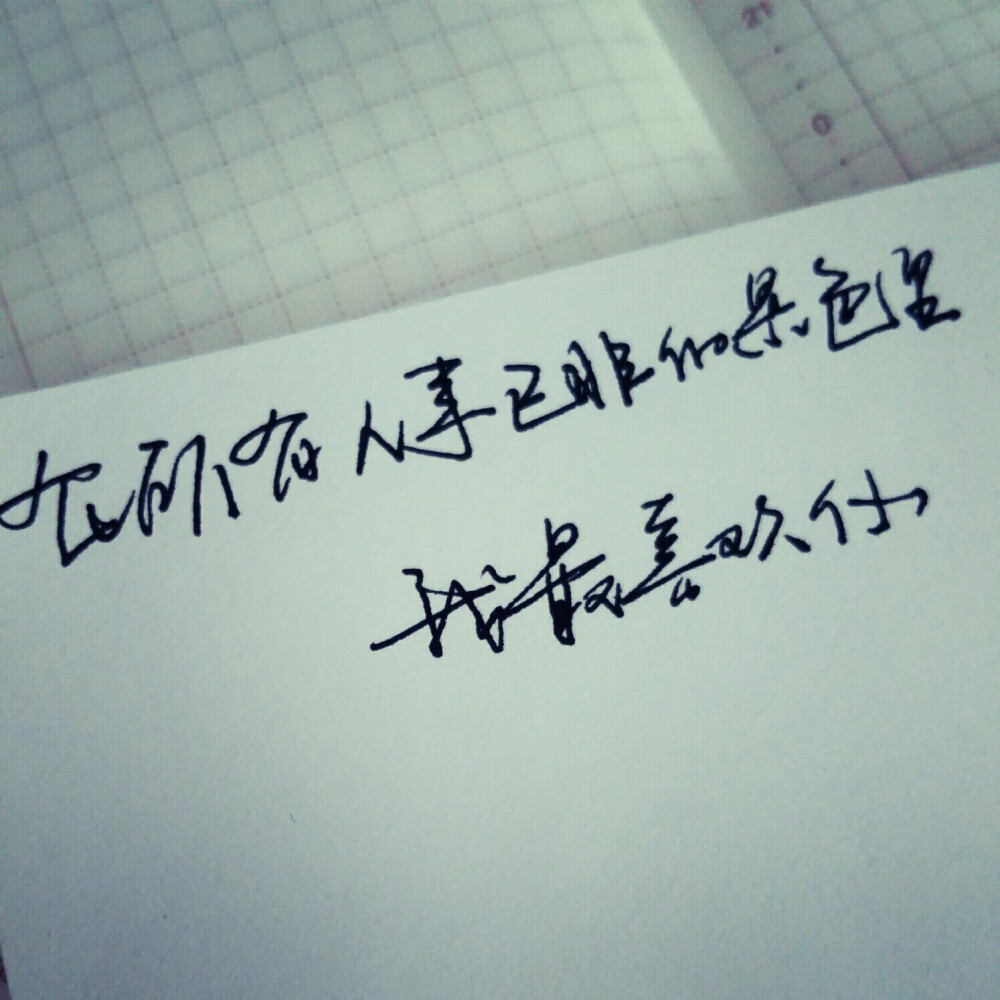 21
0
在所有人事已非的景色里
我最喜欢你